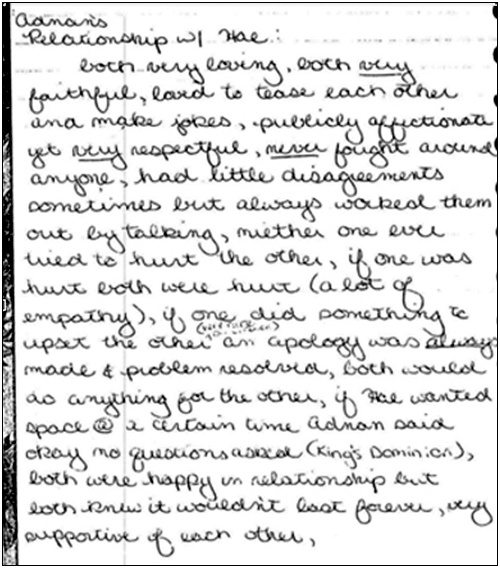 Adnan's
Relationship w/ Hae:
both very loving, both very
faithful, loved to tease each other
and make jokes, publicly affectionate
yet very respectful, never fought around
anyone, had little disagreements
sometimes but always worked them
out by talking, niether one ever
tried to hurt the other, if one was
hurt both were hurt (a lot of
empathy), if one did something to
upset the other an apology was always
made & problem resolved, both would
do anything for the other, if Hae wanted
space @ a certain time Adnan said
okay no questions asked (King's Dominion),
both were happy in relationship but
both knew it wouldn't last forever, very
supportive of each other,